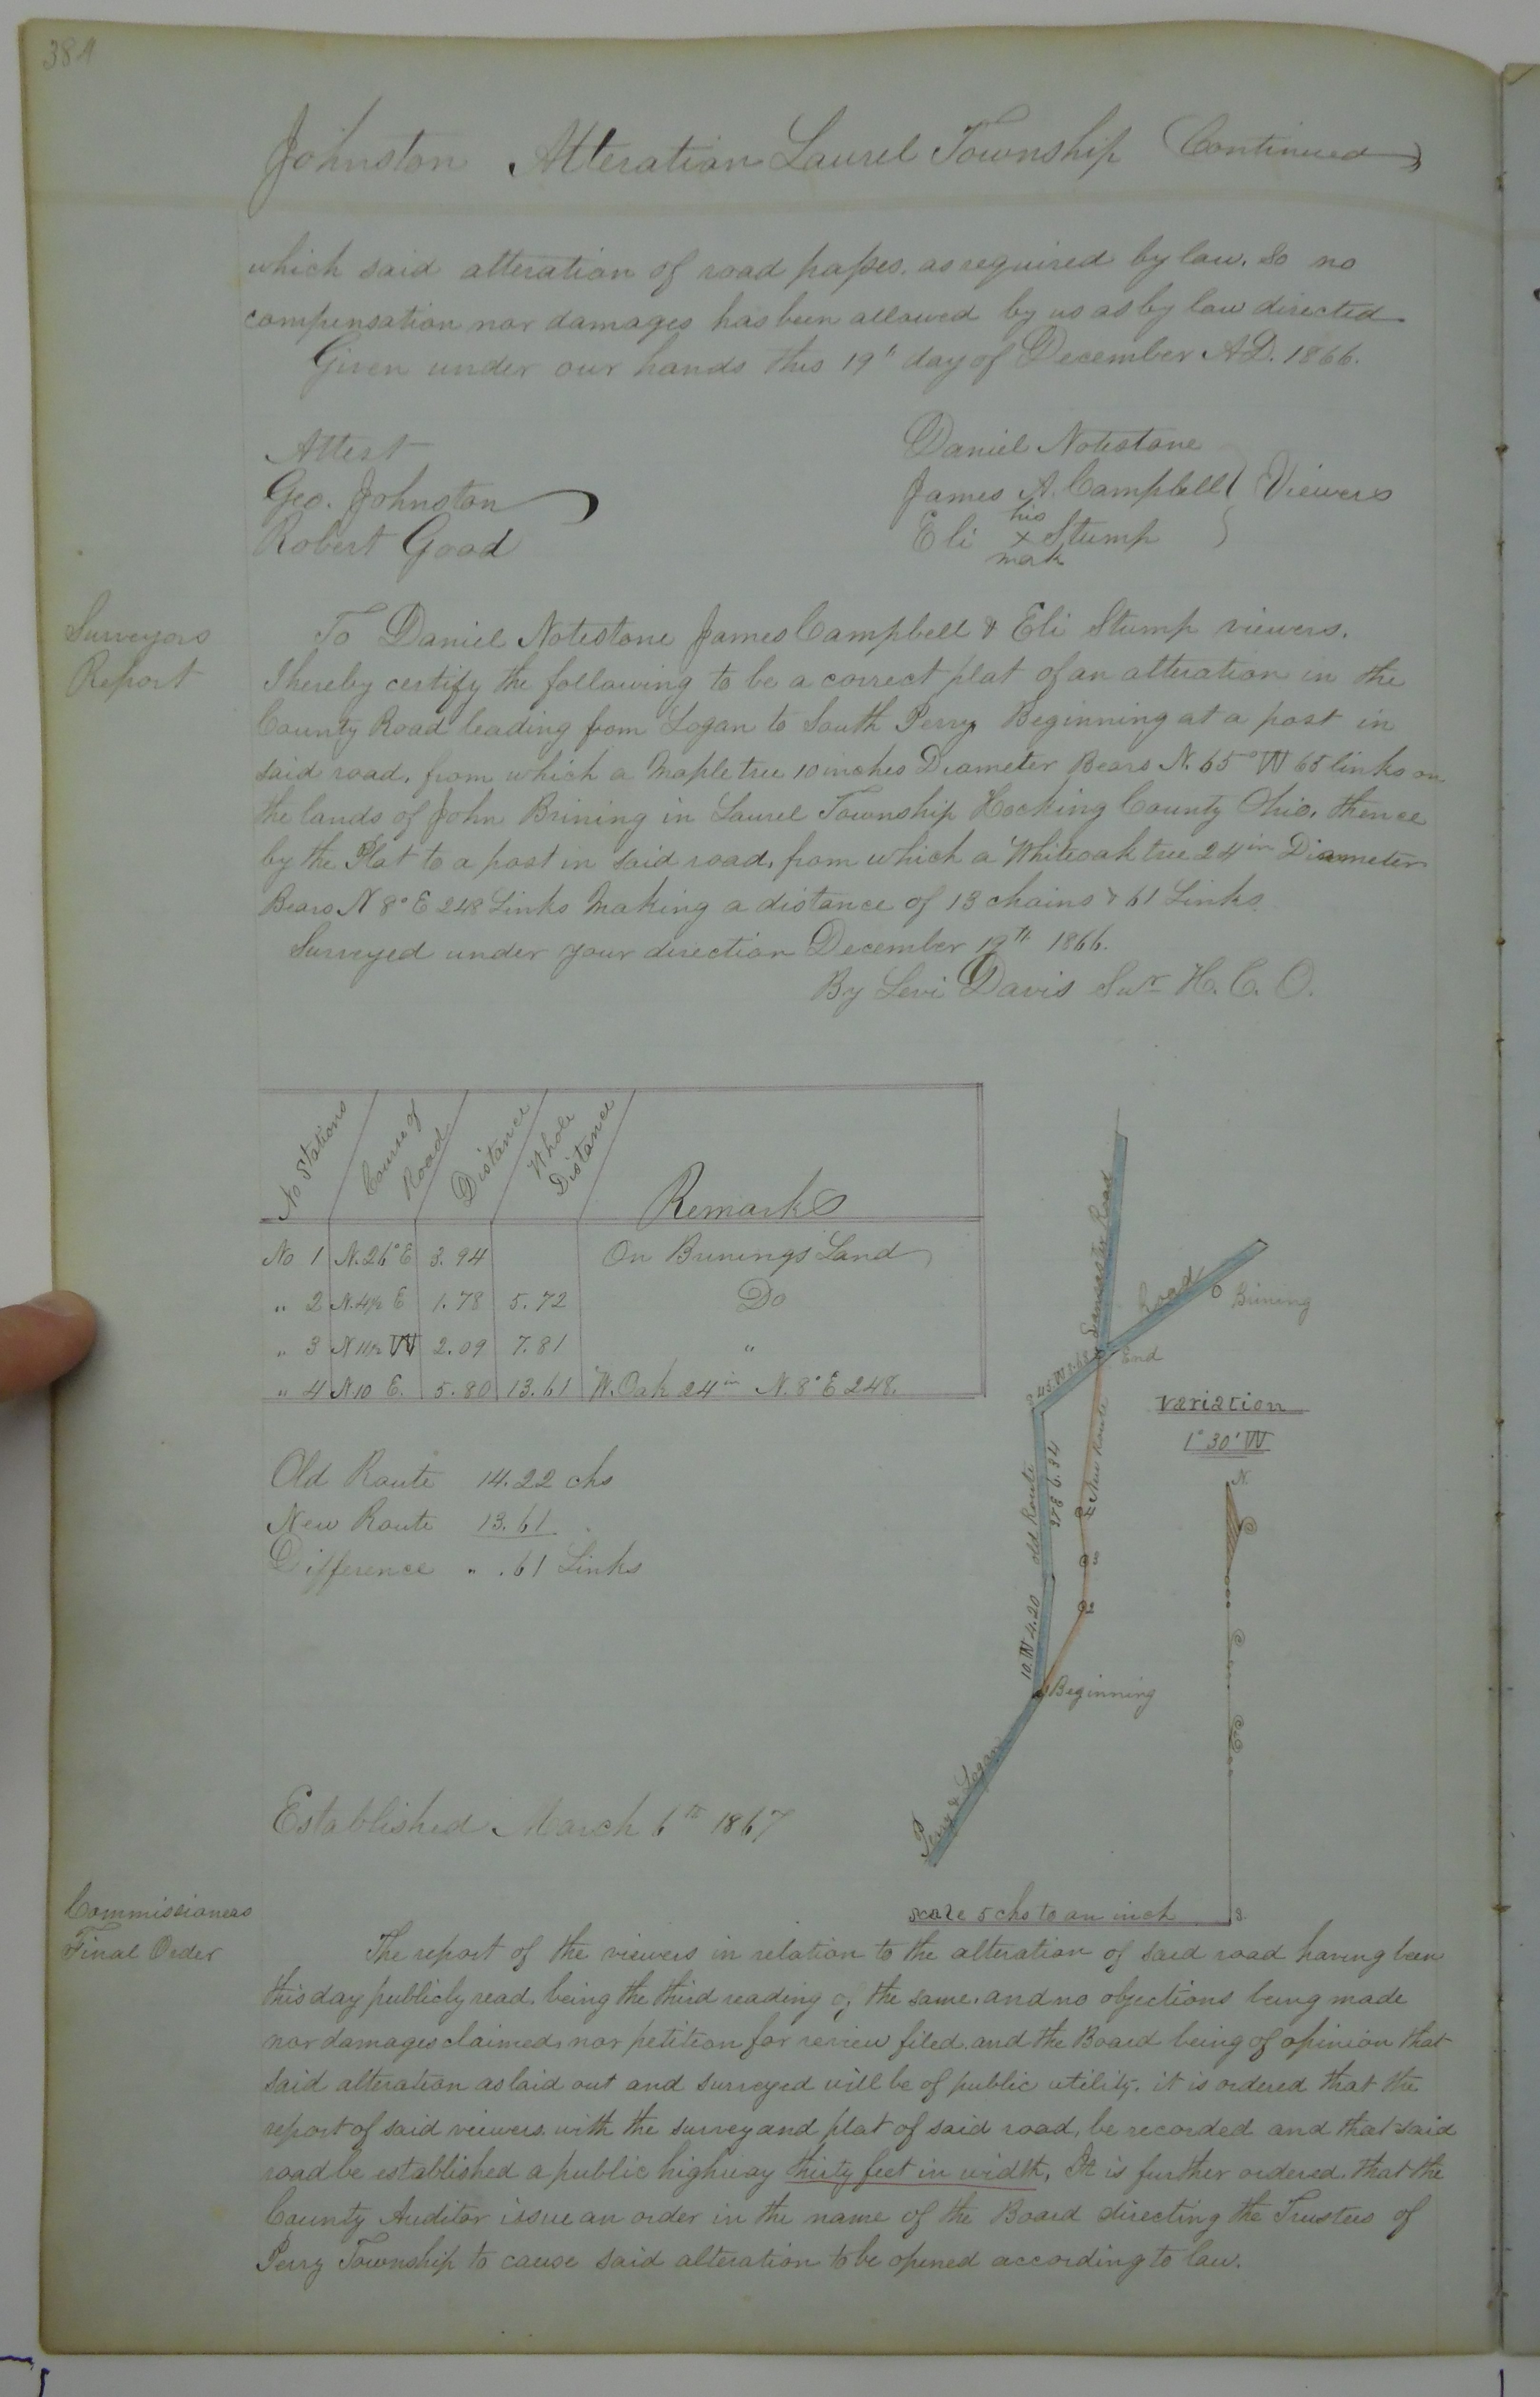 384
Johnston Alteration Laurel Township Continued
which said alteration of road passes. as required by law. So no
compensation nor damages has been allowed by us as by law directed
Given under our hands this 19" day of December A.D. 1866.
Attest
Geo. Johnston
Robert Good
Daniel Notestone
James A. Campbell } Viewers
his
Eli x Stump
mark
Surveyors
Report
To Daniel Notestone James Campbell & Eli Stump viewers.
I hereby certify the following to be a correct plat of an alteration in the
County Road leading from Logan to South Perry Beginning at a post in
said road. from which a Maple tree 10 inches Diameter Bears N. 65° W 65 links on
the lands of John Brining in Laurel Township Hocking County Ohio. thence
by the Plat to a post in said road, from which a Whiteoak tree 24 in Diameter
Bears N 8° E 248 Links Making a distance of 13 chains & 61 Links
Surveyed under your direction December 19th 1866.
By Levi Davis Sur H. C. O.
No Stations Course of Road Distance Whole Distance Remarks
No 1 N. 26° E 3.94 On Brinings Land
" 2 N. 4½ E 1.78 5.72 Do
" 3 N 11½ W 2.09 7.81 "
" 4 N. 10 E. 5.80 13.61 W. Oak 24 in N. 8° E 248.
Old Route 14.22 chs
New Route 13.61
Difference " .61 Links
Lancaster Road
Road
Brining
End
New Route
old Route
3° E 6.34
10. W 4.20
Beginning
Perry & Logan
Variation
1° 30' W
N.
S.
scale 5 chs to an inch
Established March 6th 1867
Commissioners
Final Order
The report of the viewers in relation to the alteration of said road having been
this day publicly read. being the third reading of the same. and no objections being made
nor damages claimed, nor petition for review filed. and the Board being of opinion that
said alteration as laid out and surveyed will be of public utility. it is ordered that the
report of said viewers. with the survey and plat of said road, be recorded and that said
road be established a public highway thirty feet in width, It is further ordered. that the
County Auditor issue an order in the name of the Board directing the Trustees of
Perry Township to cause said alteration to be opened according to law.